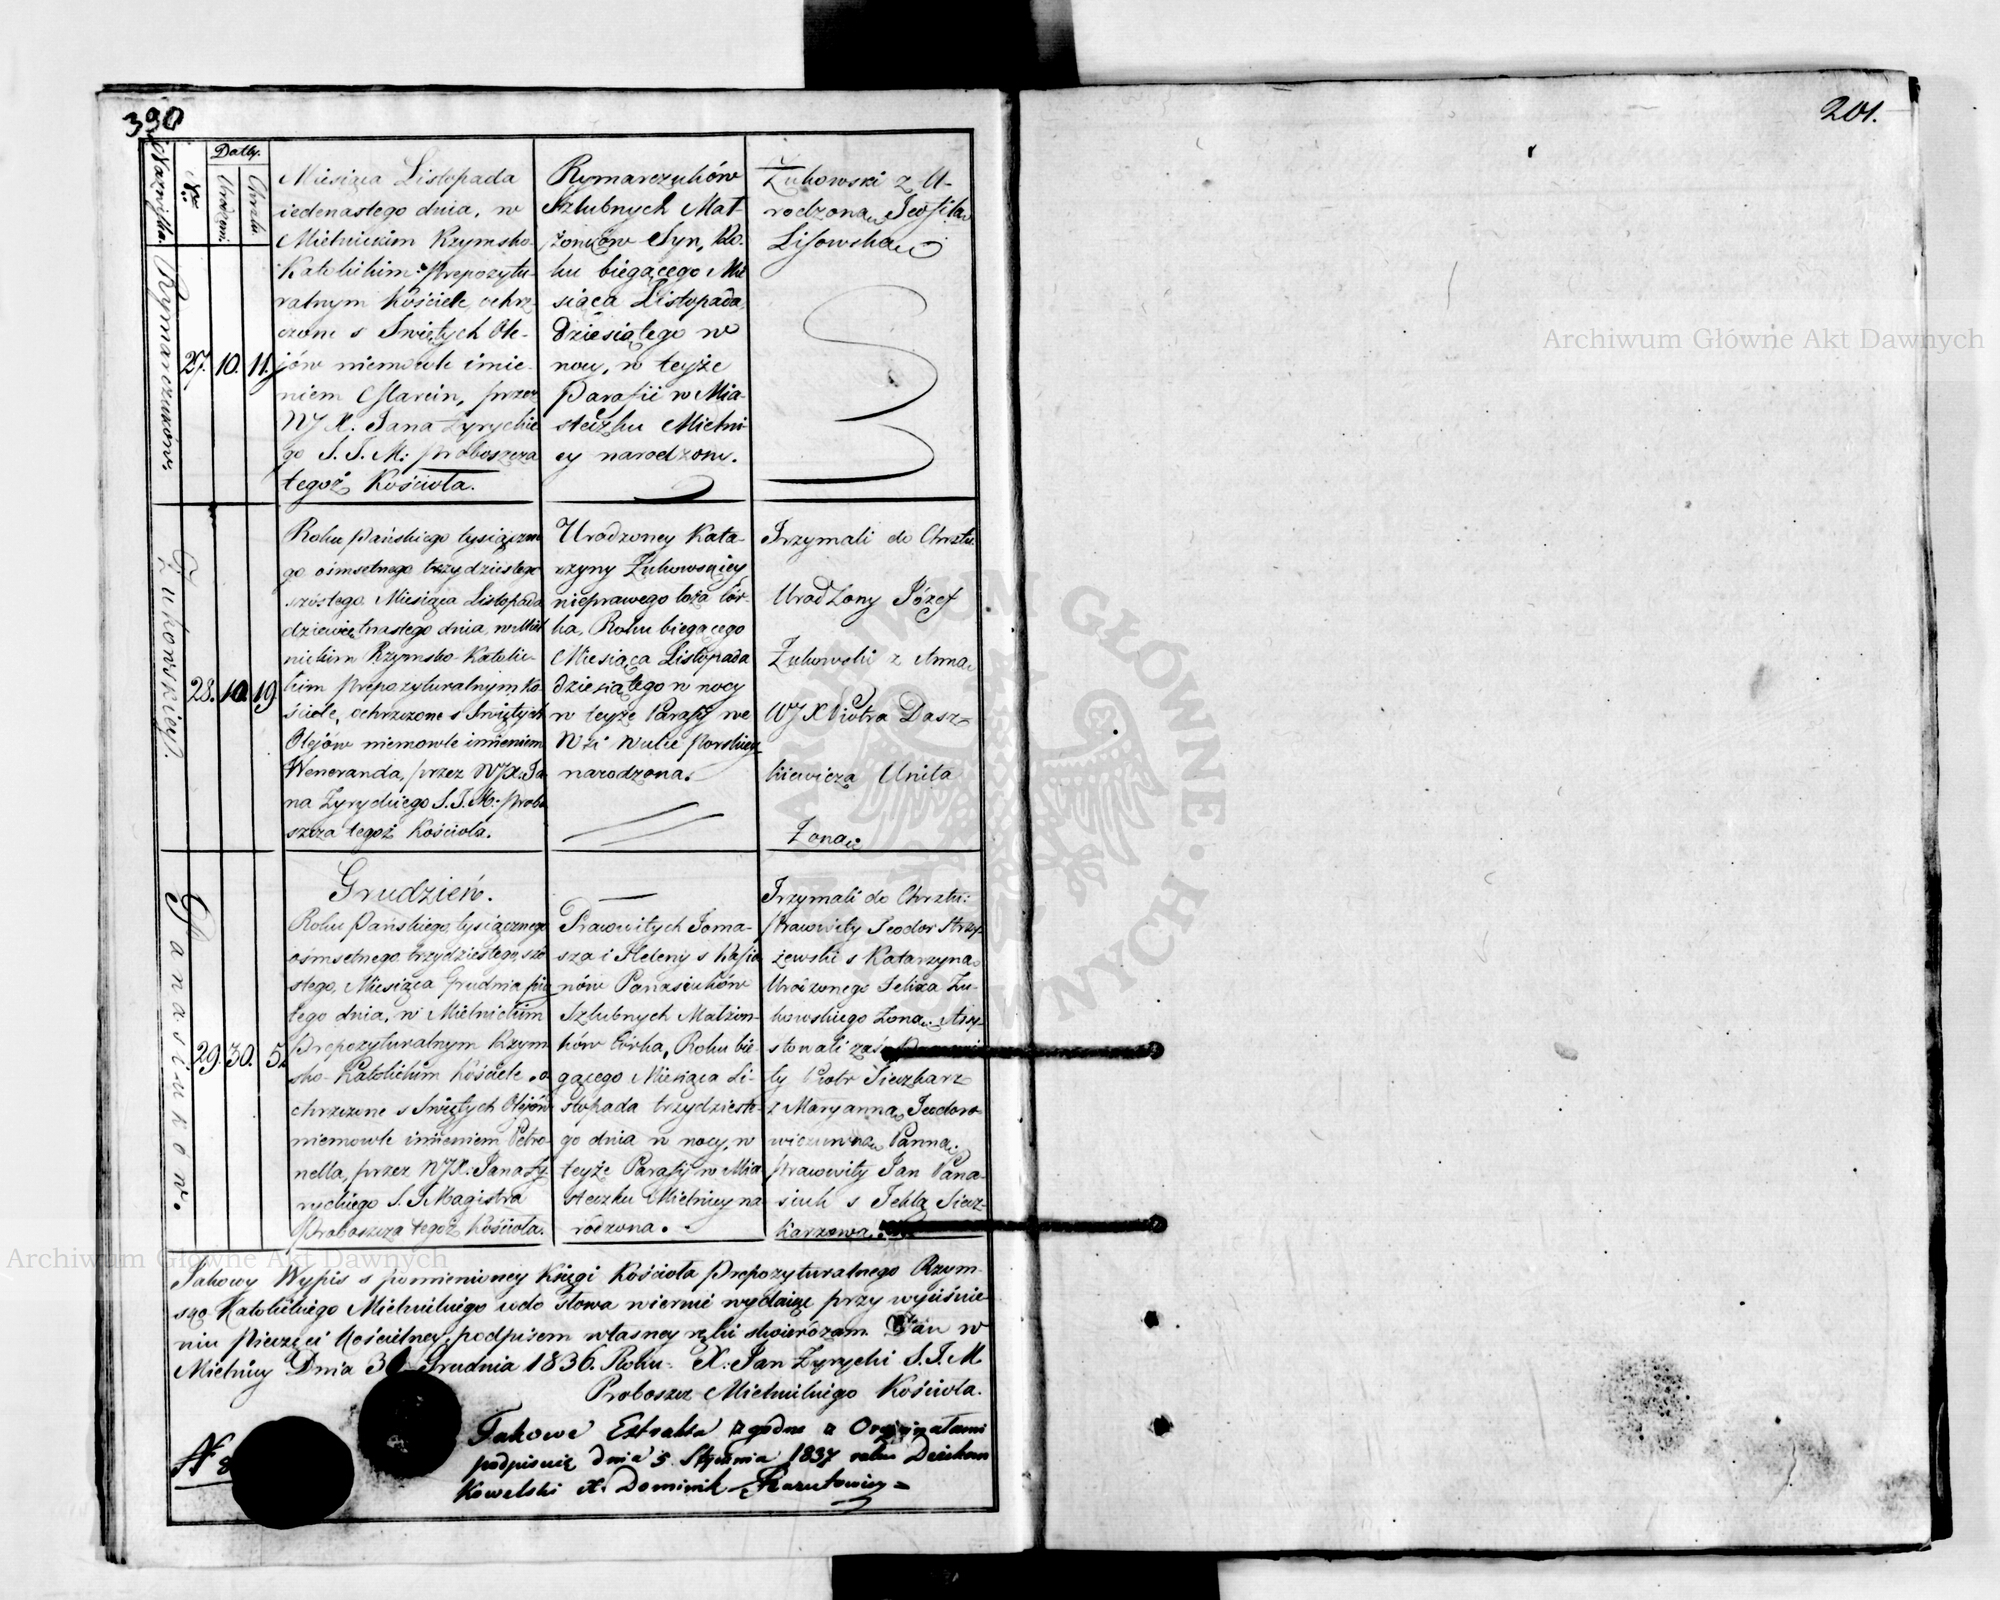 390
201.
Nazwiska.
Nr.
Datty.
Urodzeni.
Chrztu
Rymarczuków.
27.
10.
11.
Miesiąca Listopada
iedenastego dnia, w
Mielnickim Rzymsko-
Katolickim Prepozytu-
ralnym Kościele, ochrz-
czone s Swiętych Ole-
jów niemowle imie-
niem Marcin, przez
WJX. Jana Zyryckie
go S. T. M: Proboszcza
tegoż Kościoła.
Rymarczuków
Szlubnych Mał-
żonków Syn, Ro-
ku biegącego Mie
siąca Listopada
dziesiątego w
nocy, w teyże
Parafii w Mia-
steczku Mielni
cy narodzony.
Żukowski z U-
rodzoną Teofilą
Lisowską
Żukowskiey.
28.
10.
19.
Roku Pańskiego tysiączne
go ośmsetnego trzydziestego
szóstego Miesiąca Listopada
dziewiętnastego dnia, w Miel
nickim Rzymsko-Katolic-
kim Prepozyturalnym Ko-
ściele, ochrzczone s Swiętych
Olejów niemowle imieniem
Weneranda, przez WJX. Ja
na Zyryckiego S. T. M. Probo
szcza tegoż Kościoła.
Urodzoney Kata-
rzyny Żukowskiey
nieprawego łoża Cór-
ka, Roku biegącego
Miesiąca Listopada
dziesiątego w nocy
w teyże Parafij we
Wsi Wulce Porskiey
narodzona.
Trzymali do Chrztu
Urodzony Józef
Żukowski z Anną
WJX Piotra Dasz-
kiewicza Unita
Żoną
Panasiuków.
29.
30.
5.
Grudzień.
Roku Pańskiego tysiącznego
ośmsetnego trzydziestego szó
stego, Miesiąca Grudnia pią
tego dnia, w Mielnickim
Prepozyturalnym Rzym
sko-Katolickim Kościele, o-
chrzczone s Swiętych Olejów
niemowle imieniem Petro-
nella, przez WJX. Jana Zy
ryckiego S. T. Magistra
Proboszcza tegoż Kościoła.
Prawowitych Toma-
sza i Heleny s Kasia
nów Panasiuków
Szlubnych Małżon-
ków Córka, Roku bie-
gącego Miesiąca Li-
stopada trzydzieste-
go dnia w nocy, w
teyże Parafij w Mia
steczku Mielnicy na
rodzona.
Trzymali do Chrztu:
Prawowity Teodor Strzy
żewski s Katarzyną
Urodzonego Felixa Żu-
kowskiego Żoną. Assy-
stowali zaś Prawowi
ty Piotr Sieczkarz
z Maryanną Teodoro-
wiczówną Panną.
Prawowity Jan Pana-
siuk s Teklą Siecz-
karzową.
Takowy Wypis s pomienioney Księgi Kościoła Prepozyturalnego Rzym-
sko Katolickiego Mielnickiego co do słowa wiernie wydaiąc przy wyciśnie-
niu Pieczęci Kościelney, podpisem własney ręki stwierdzam. Dan w
Mielnicy Dnia 31 Grudnia 1836. Roku. X. Jan Zyrycki S. T. M
Proboszcz Mielnickiego Kościoła.
Takowe Extrakta zgodne z Oryginałami
podpisuię dnia 5 Stycznia 1837 roku Dziekan
Kowelski X. Dominik
N 8
Archiwum Główne Akt Dawnych
Archiwum Główne Akt Dawnych
ARCHIWUM GŁÓWNE AKT DAWNYCH